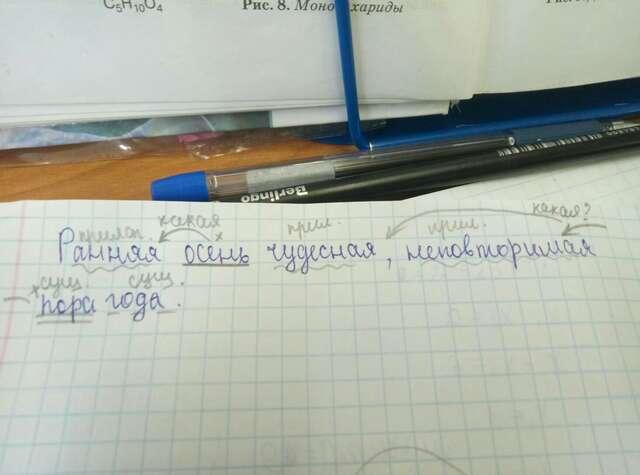 C₅H₁₀O₄
Рис. 8. Моно хариды
Рис.
Berlingo
какая
какая?
прилаг.
х
прил.
прил.
Ранняя осень чудесная, неповторимая
х сущ.
сущ.
пора года.